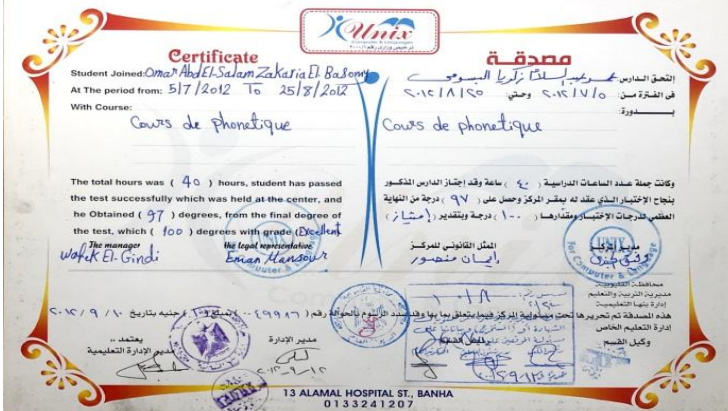 Unix
Computer & Languages
Certificate
Student Joined: Omar Abd El-Salam Zakaria El-Basomy
At The period from: 5/7/2012 To 25/8/2012
With Course:
Cours de phonetique
The total hours was ( 40 ) hours, student has passed
the test successfully which was held at the center, and
he Obtained ( 97 ) degrees, from the final degree of
the test, which ( 100 ) degrees with grade (Excellent
The manager
the legal representative
Wafek El-Gindi
Eman Mansour
مصدقة
إلتحق الدارس عمر عبد السلام زكريا البسيومى
فى الفترة من: ٢٠١٢/٧/٥ وحتي: ٢٠١٢/٨/٢٥
بدورة:
Cours de phonetique
وكانت جملة عدد الساعات الدراسية ( ٤٠ ) ساعة وقد إجتاز الدارس المذكور
بنجاح الإختبار الذي عقد له بمقر المركز وحصل على ( ٩٧ ) درجة من النهاية
العظمي لدرجات الإختبار ومقدارها ( ١٠٠ ) درجة وبتقدير ( إمتياز )
مدير المركز
الممثل القانوني للمركز
إيمان منصور
For Computer & Language
محافظة القليوبية
مديرية التربية والتعليم
إدارة بنها التعليمية
هذه المصدقة تم تحريرها تحت مسئولية المركز فيما يتعلق بما بها وقد سدد الرسوم بالحوالة رقم
جنيه بتاريخ ٢٠١٢/٩/١٠
إدارة التعليم الخاص
وكيل القسم
رئيس القسم
مدير الإدارة
يعتمد ،،
مدير الإدارة التعليمية
13 ALAMAL HOSPITAL ST., BANHA
0133241207